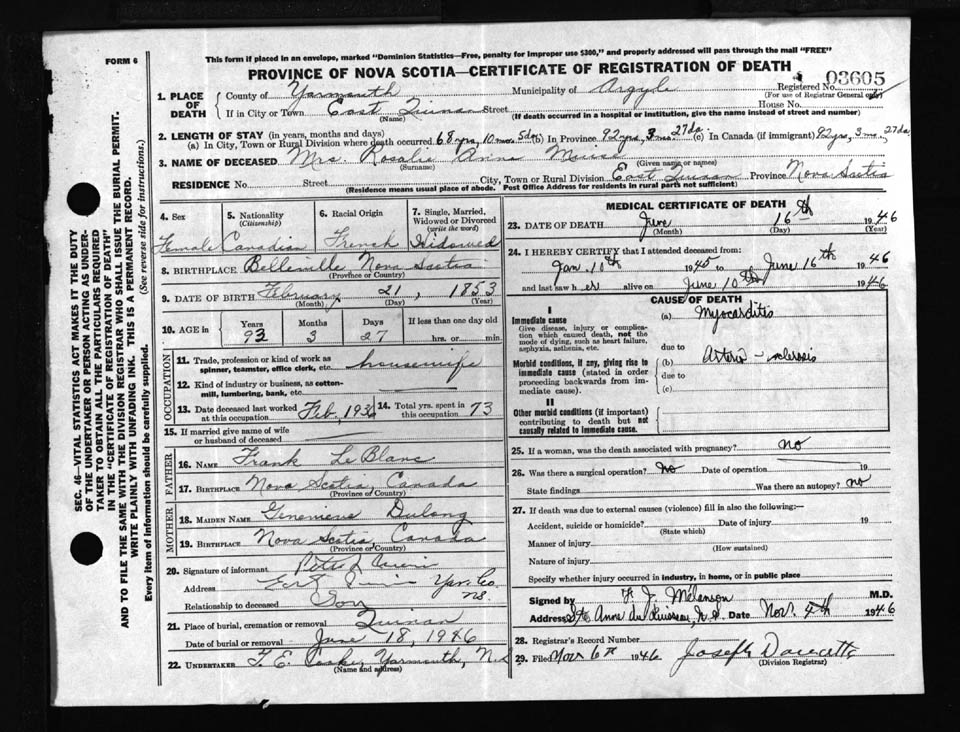 FORM 6
This form if placed in an envelope, marked "Dominion Statistics—Free, penalty for improper use $300," and properly addressed will pass through the mail "FREE"
PROVINCE OF NOVA SCOTIA—CERTIFICATE OF REGISTRATION OF DEATH
Registered No. 03605
(For use of Registrar General only)
1. PLACE OF DEATH
County of Yarmouth Municipality of Argyle
If in City or Town East Quinan Street House No.
(Name) (If death occurred in a hospital or institution, give the name instead of street and number)
2. LENGTH OF STAY (in years, months and days)
(a) In City, Town or Rural Division where death occurred 68 yrs, 10 mo. 5 da (b) In Province 92 yrs, 3 mo 27 da (c) In Canada (if immigrant) 92 yrs, 3 mo. 27 da
3. NAME OF DECEASED Mrs. Rosalie Anna Muise
(Surname) (Given name or names)
RESIDENCE No. Street City, Town or Rural Division East Quinan Province Nova Scotia
(Residence means usual place of abode. Post Office Address for residents in rural parts not sufficient)
4. Sex Female
5. Nationality (Citizenship) Canadian
6. Racial Origin French
7. Single, Married, Widowed or Divorced (write the word) Widowed
8. BIRTHPLACE Belleville Nova Scotia
(Province or Country)
9. DATE OF BIRTH February 21, 1853
(Month) (Day) (Year)
10. AGE in Years 93 Months 3 Days 27 If less than one day old hrs. or min.
OCCUPATION
11. Trade, profession or kind of work as spinner, teamster, office clerk, etc. housewife
12. Kind of industry or business, as cotton-mill, lumbering, bank, etc.
13. Date deceased last worked at this occupation Feb, 1936
14. Total yrs. spent in this occupation 73
15. If married give name of wife or husband of deceased
FATHER
16. NAME Frank Le Blanc
17. BIRTHPLACE Nova Scotia, Canada
(Province or Country)
MOTHER
18. MAIDEN NAME Genevieve Dulong
19. BIRTHPLACE Nova Scotia, Canada
(Province or Country)
20. Signature of informant Peter
Address East Yar. Co. N.S.
Relationship to deceased Son
21. Place of burial, cremation or removal Quinan
Date of burial or removal June 18, 1946
22. UNDERTAKER Yarmouth, N.S
(Name and address)
MEDICAL CERTIFICATE OF DEATH
23. DATE OF DEATH June 16th 1946
(Month) (Day) (Year)
24. I HEREBY CERTIFY that I attended deceased from:
Jan. 11th 1945 to June 16th 1946
and last saw h er alive on June 10th 1946
CAUSE OF DEATH
I
Immediate cause
Give disease, injury or complication which caused death, not the mode of dying, such as heart failure, asphyxia, asthenia, etc.
(a) Myocarditis
due to
Morbid conditions, if any, giving rise to immediate cause (stated in order proceeding backwards from immediate cause).
(b) Arterio-sclerosis
due to
(c)
II
Other morbid conditions (if important) contributing to death but not causally related to immediate cause.
25. If a woman, was the death associated with pregnancy? no
26. Was there a surgical operation? No Date of operation 19
State findings Was there an autopsy? no
27. If death was due to external causes (violence) fill in also the following:—
Accident, suicide or homicide? Date of injury 19
(State which)
Manner of injury
(How sustained)
Nature of injury
Specify whether injury occurred in industry, in home, or in public place
Signed by F. J. Melanson M.D.
Address Ste Anne du Ruisseau, N.S. Date Nov. 4th 1946
28. Registrar's Record Number
29. Filed Nov 6th 1946 Joseph Doucette
(Division Registrar)
SEC. 46—VITAL STATISTICS ACT MAKES IT THE DUTY
OF THE UNDERTAKER OR PERSON ACTING AS UNDER-
TAKER TO OBTAIN ALL THE PARTICULARS REQUIRED
IN THE "CERTIFICATE OF REGISTRATION OF DEATH"
AND TO FILE THE SAME WITH THE DIVISION REGISTRAR WHO SHALL ISSUE THE BURIAL PERMIT.
WRITE PLAINLY WITH UNFADING INK. THIS IS A PERMANENT RECORD.
Every item of information should be carefully supplied. (See reverse side for instructions.)